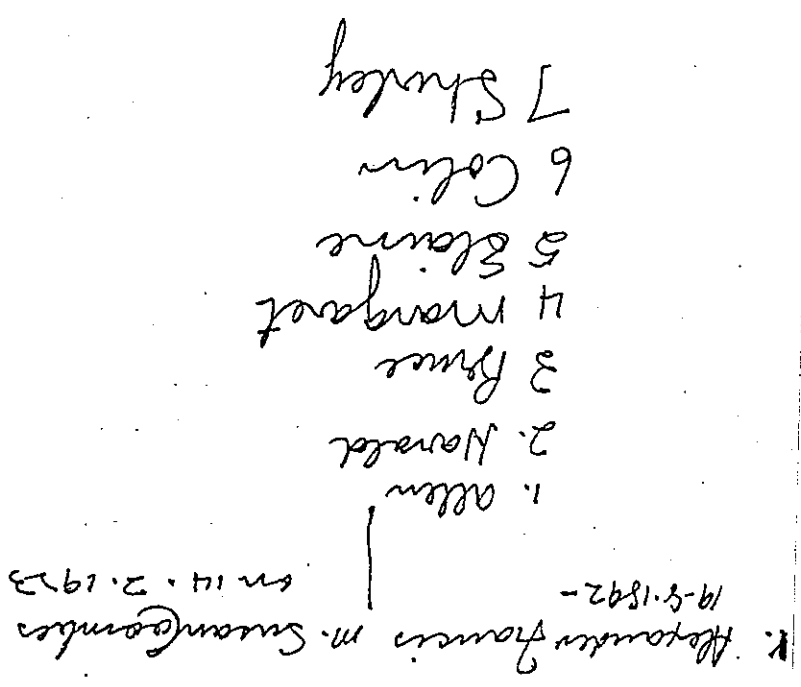 K. Alexander Francis m. Susan Coombes
19-8-1892- on 14.2.1923
1. Allen
2. Harald
3 Bruce
4 Margaret
5 Elaine
6 Colin
7 Shirley